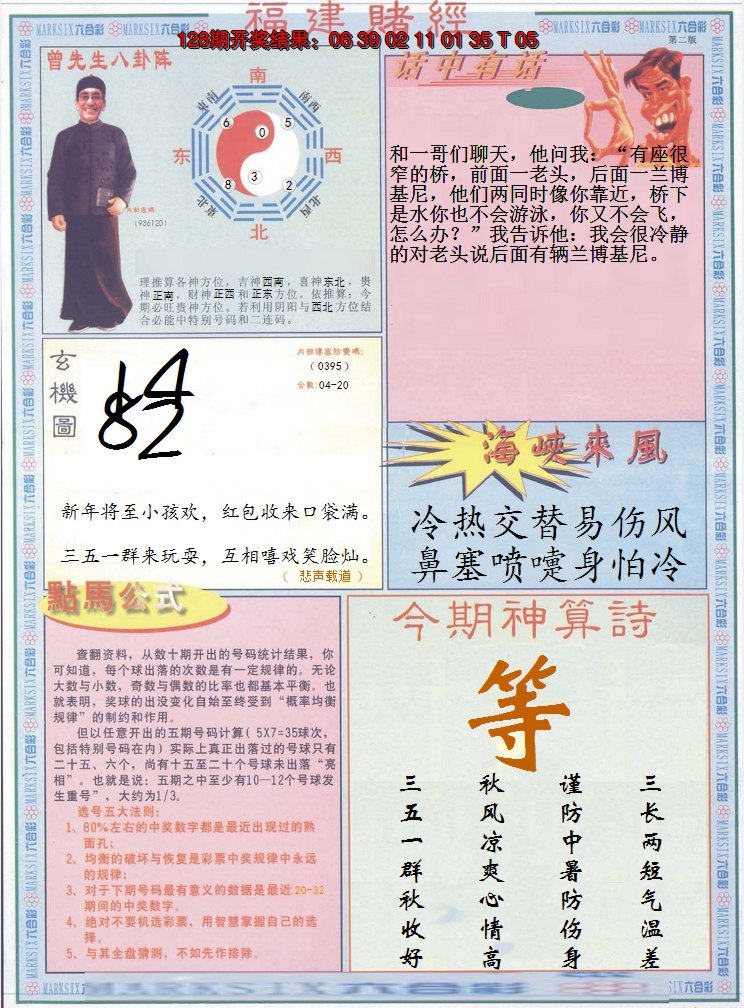 福建賭經
128期开奖结果：06 39 02 11 01 35 T 05
MARKSIX六合彩
第二版
曾先生八卦阵
南
東南
南西
东
西
東北
西北
北
6
0
5
8
3
2
內部密碼：
(936120)
理推算各神方位，吉神西南，喜神东北，贵
神正南，财神正西和正东方位。依推算：今
期必旺贵神方位。若利用阴阳与西北方位结
合必能中特别号码和二连码。
话中有话
和一哥们聊天，他问我：“有座很
窄的桥，前面一老头，后面一兰博
基尼，他们两同时像你靠近，桥下
是水你也不会游泳，你又不会飞，
怎么办？”我告诉他：我会很冷静
的对老头说后面有辆兰博基尼。
玄機圖
14
82
内部傳容防密碼：
（0395）
合数:04-20
新年将至小孩欢，红包收来口袋满。
三五一群来玩耍，互相嘻戏笑脸灿。
（ 悲声载道 ）
海峡來風
冷热交替易伤风
鼻塞喷嚏身怕冷
點馬公式
查翻资料，从数十期开出的号码统计结果，你
可知道，每个球出落的次数是有一定规律的。无论
大数与小数，奇数与偶数的比率也都基本平衡。也
就表明，奖球的出没变化自始至终受到“概率均衡
规律”的制约和作用。
但以任意开出的五期号码计算( 5X7=35球次，
包括特别号码在内) 实际上真正出落过的号球只有
二十五、六个，尚有十五至二十个号球未出落“亮
相”。也就是说：五期之中至少有10—12个号球发
生重号”，大约为1/3。
选号五大法则：
1、80%左右的中奖数字都是最近出现过的熟
面孔；
2、均衡的破坏与恢复是彩票中奖规律中永远
的规律；
3、对于下期号码最有意义的数据是最近20-32
期间的中奖数字。
4、绝对不要机选彩票，用智慧掌握自己的选
择。
5、与其全盘猜测，不如先作排除。
今期神算詩
等
三长两短气温差
谨防中暑防伤身
秋风凉爽心情高
三五一群秋收好